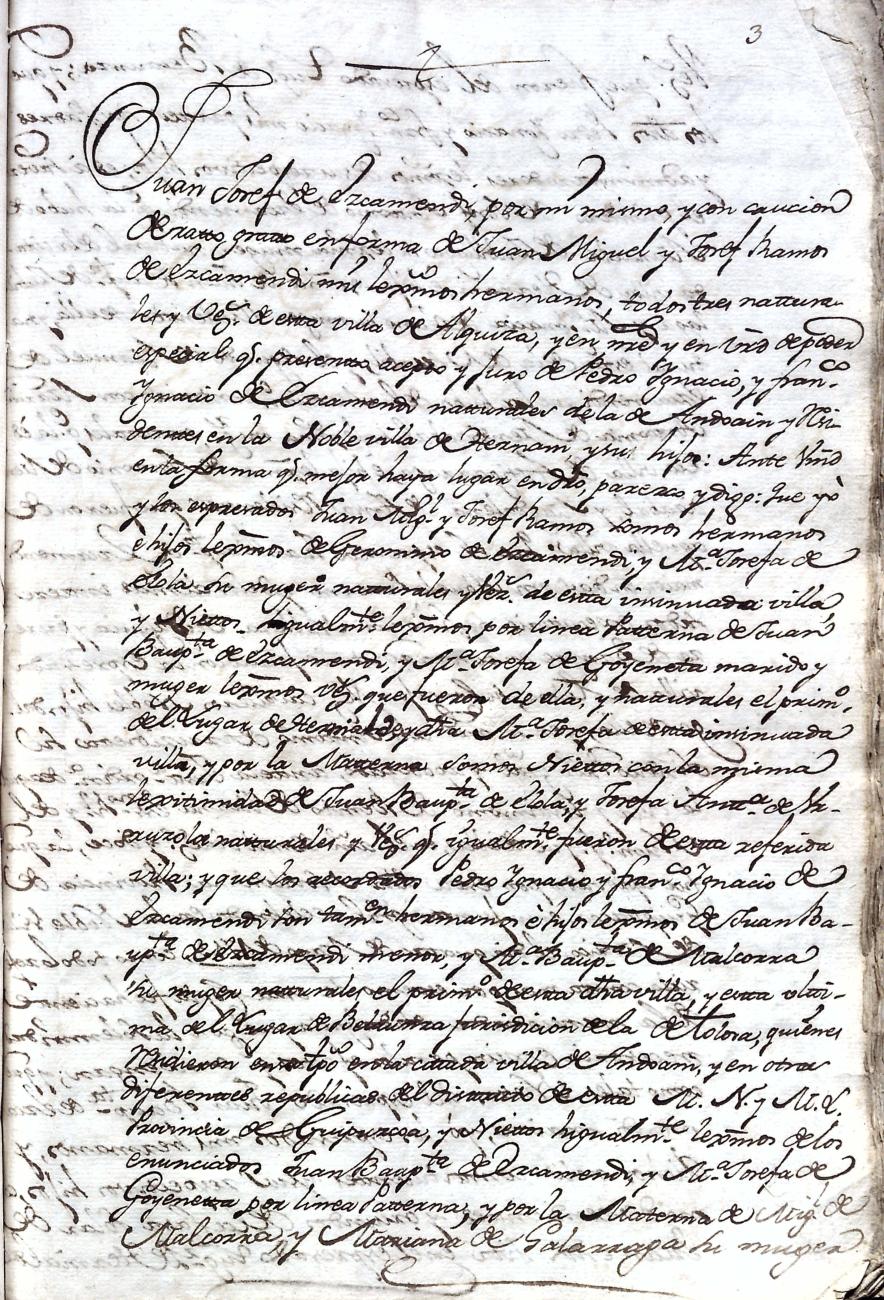 3
Juan Josef de Ezcamendi, por mi mismo, y con caucion
de ratto gratto en forma de Juan Miguel y Josef Ramos
de Ezcamendi mis lexmos hermanos, todos tres nattura-
les y Vez.s de esta villa de Alquiza, y en nre y en Vrd de poder
especial q.e presento acepto y juro de Pedro Ygnacio, y fran.co
Ygnacio de Ezcamendi naturales de la de Andoain y Resi-
dentes en la Noble villa de Hernani, y sus hijos: Ante Vmd
en la forma q.e mejor haya lugar en dro, parezco y digo: Que yò
y los expresados Juan Mig.l y Josef Ramos somos hermanos
è hijos lexmos de Geronimo de Ezcamendi, y M.a Josefa de
Elola su muger naturales y Vez.s de esta insinuada villa,
y Niettos igualm.te lexmos por linea Patterna de Juan
Baup.ta de Ezcamendi, y M.a Josefa de Goyeneta marido y
muger lexmos Vez.s que fueron de ella, y naturales el prim.o
del Lugar de Hernialde, y dha M.a Josefa de esta insinuada
villa, y por la Matterna somos Niettos con la misma
lexitimidad de Juan Baup.ta de Elola, y Josefa Antt.a de Yr-
aurzola naturales y Vez.s q.e igualm.te fueron de esta referida
villa; y que los acordados Pedro Ygnacio y fran.co Ygnacio de
Ezcamendi son tam.en hermanos è hijos lexmos de Juan Ba-
up.ta de Ezcamendi menor, y M.a Baup.ta de Malcorra
su muger naturales el prim.o de esta dha villa, y esta ulti-
ma del Lugar de Beltranza jurisdicion de la de Tolosa, quiènes
Residieron en tpo en la citada villa de Andoain, y en otras
diferentes republicas del districto de esta M. N. y M. L.
Provincia de Guipuzcoa, y Niettos higualm.te lexmos de los
enunciados Juan Baup.ta de Ezcamendi, y M.a Josefa de
Goyenetta por linea Patterna, y por la Materna de Mig.l de
Malcorra, y Mariana de Galarraga su muger